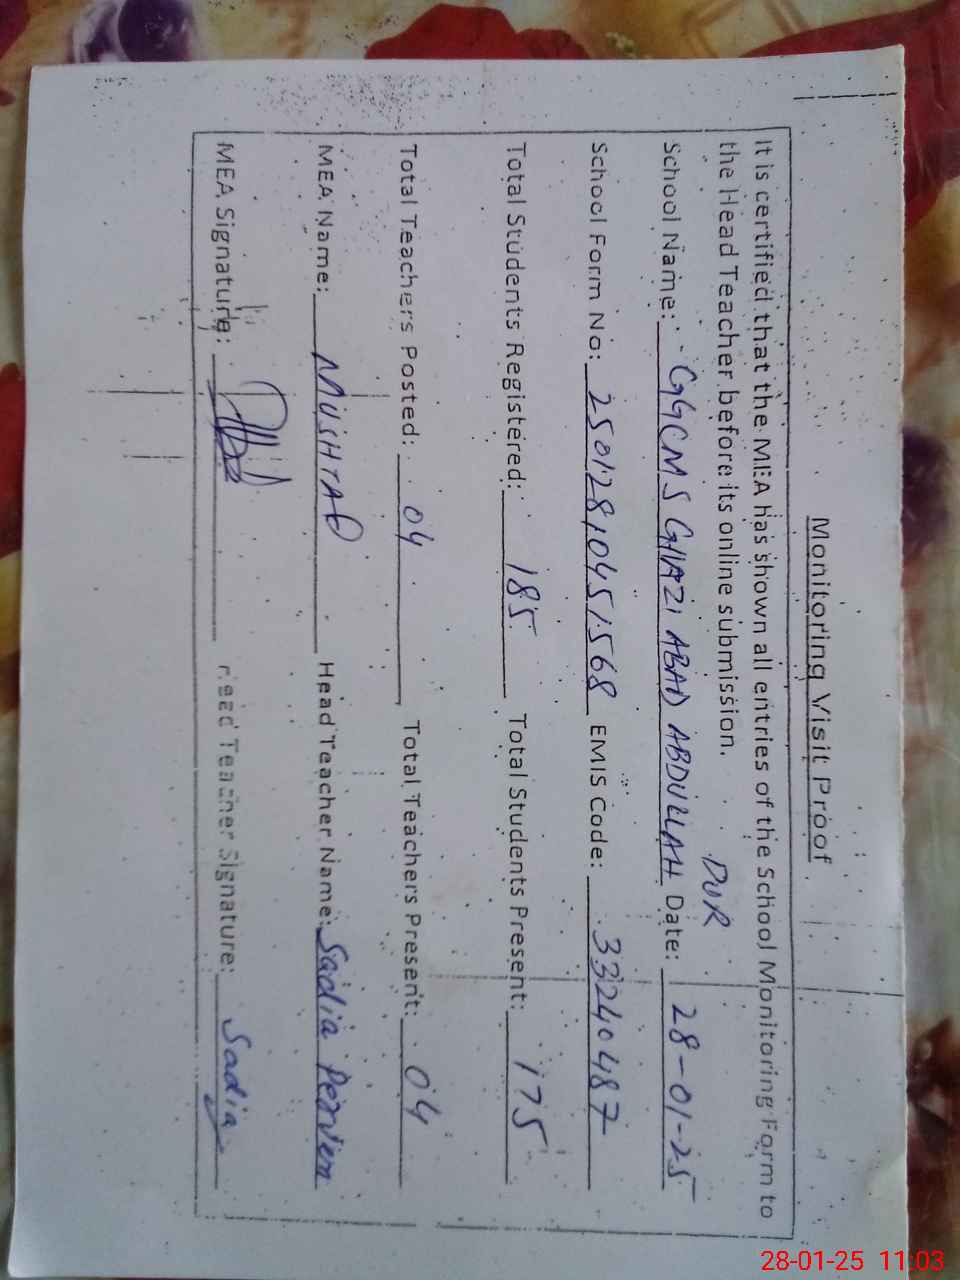 Monitoring Visit Proof
It is certified that the MEA has shown all entries of the School Monitoring Form to
the Head Teacher before its online submission.
DUR
School Name: GGCMS GHAZI ABAD ABDULLAH Date: 28-01-25
School Form No: 25012810451568 EMIS Code: 33240487
Total Students Registered: 185 Total Students Present: 175
Total Teachers Posted: 04 Total Teachers Present: 04
MEA Name: MUSHTAQ Head Teacher Name: Sadia Perveen
MEA Signature: Head Teacher Signature: Sadia
28-01-25 11:03